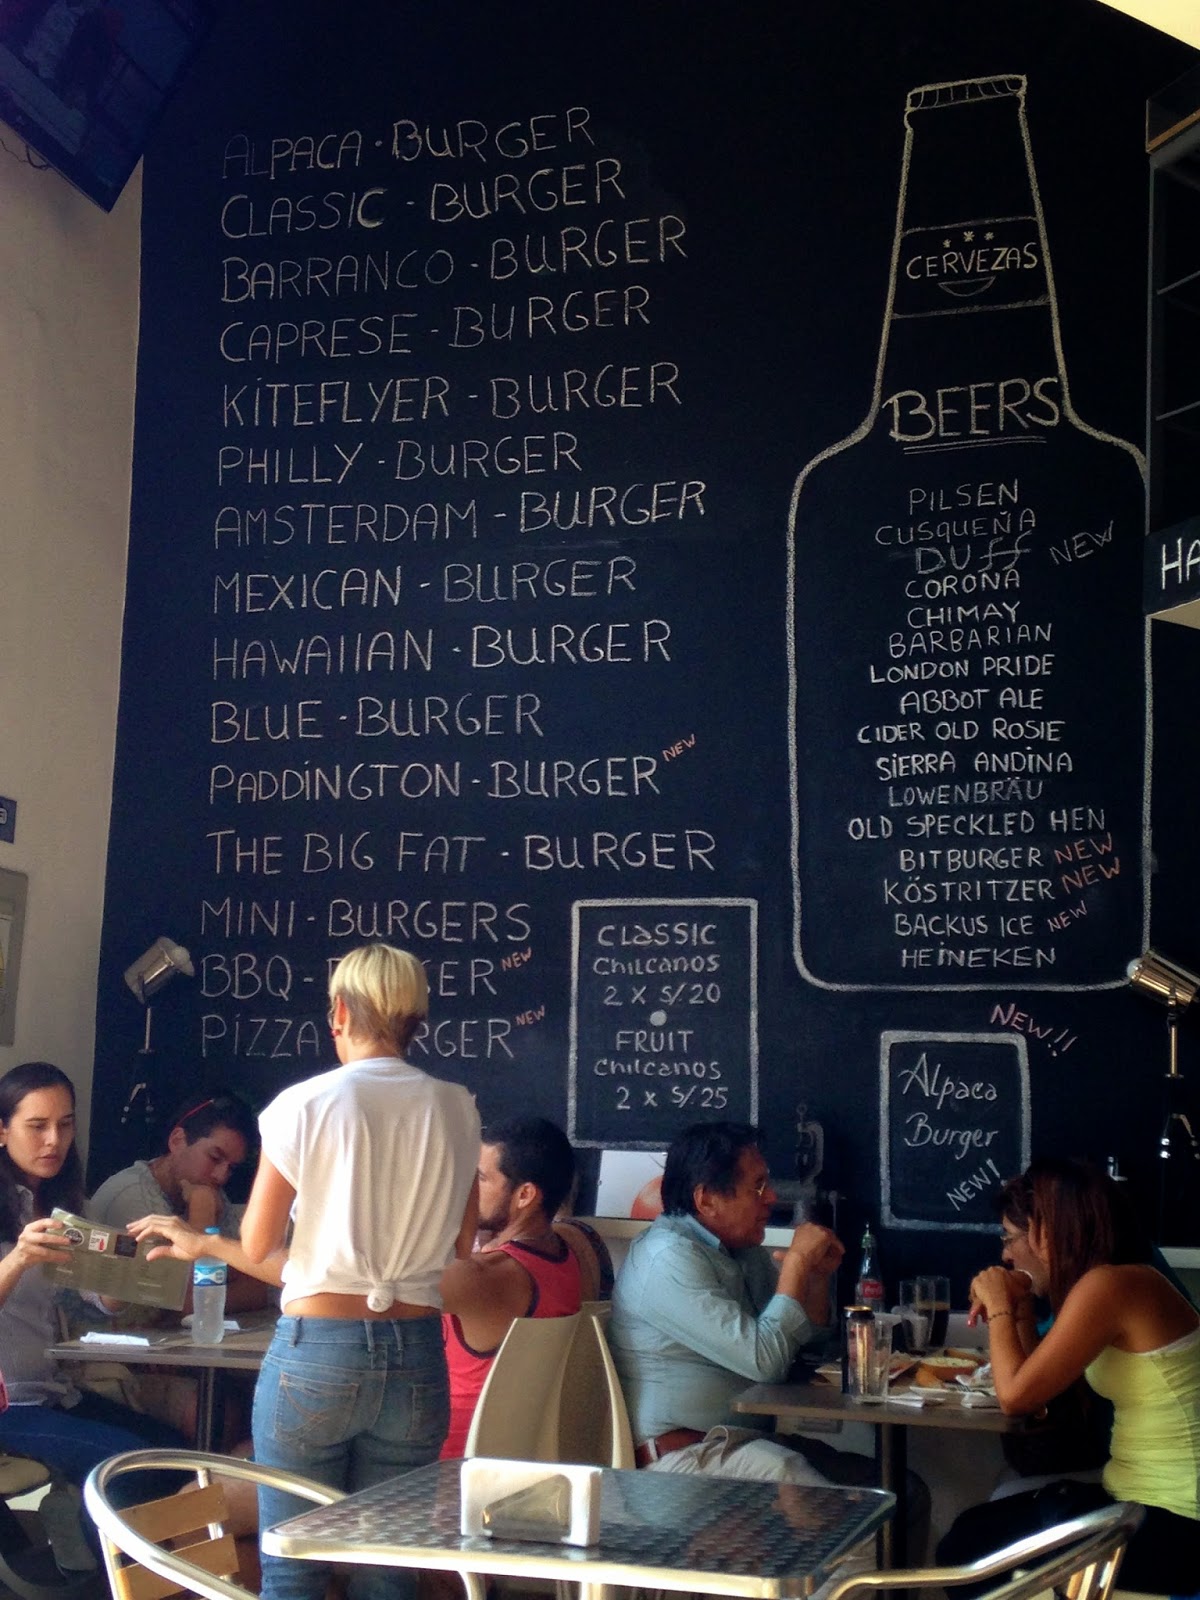 ALPACA - BURGER
CLASSIC - BURGER
BARRANCO - BURGER
CAPRESE - BURGER
KITEFLYER - BURGER
PHILLY - BURGER
AMSTERDAM - BURGER
MEXICAN - BURGER
HAWAIIAN - BURGER
BLUE - BURGER
PADDINGTON - BURGER NEW
THE BIG FAT - BURGER
MINI - BURGERS
BBQ - B GER NEW
PIZZA RGER NEW
CLASSIC
CHILCANOS
2 X S/. 20
FRUIT
CHILCANOS
2 X S/. 25
CERVEZAS
BEERS
PILSEN
CUSQUEÑA
DUff NEW
CORONA
CHIMAY
BARBARIAN
LONDON PRIDE
ABBOT ALE
CIDER OLD ROSIE
SIERRA ANDINA
LOWENBRÄU
OLD SPECKLED HEN
BITBURGER NEW
KÖSTRITZER NEW
BACKUS ICE NEW
HEINEKEN
NEW!!
Alpaca
Burger
NEW!
HA